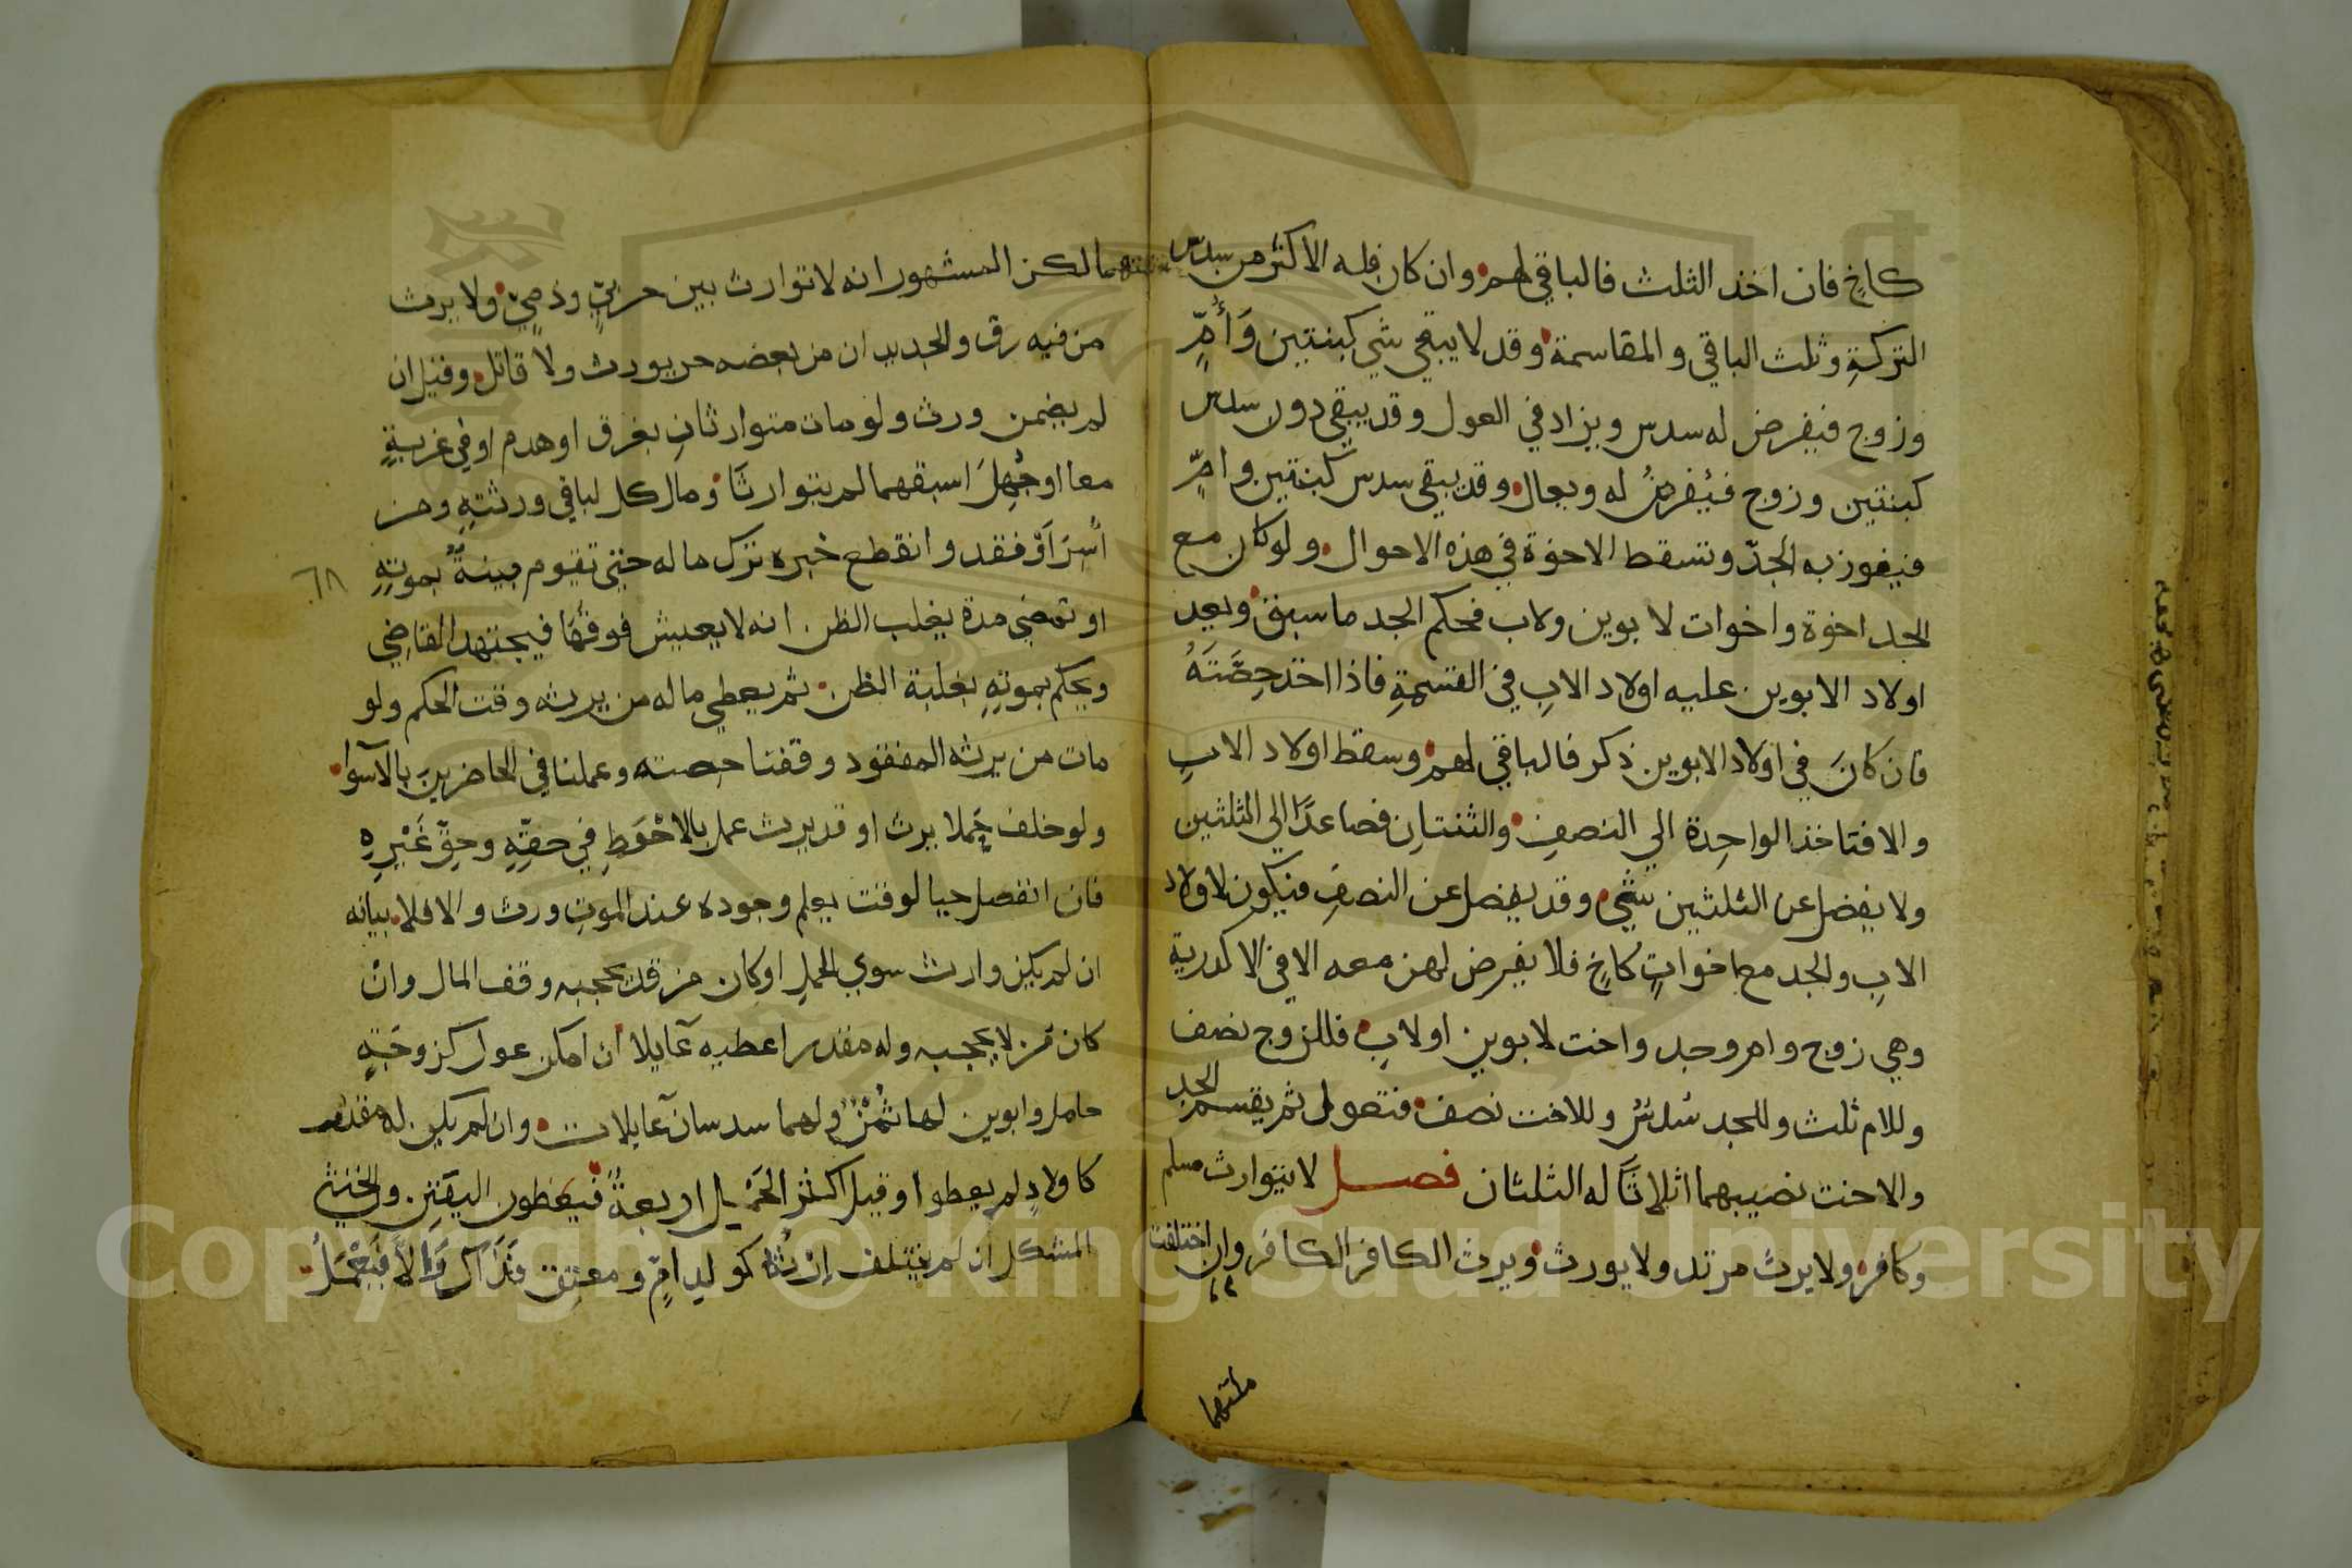 كاخٍ فان اخذ الثلث فالباقي لهم وان كان فله الاكثر من سدس
التركةِ وثلث الباقي والمقاسمة وقد لا يبقي شي كبنتين وَأُمٍّ
وزوج فيفرض له سدس ويزاد في العول وقد يبقي دون سدس
كبنتين وزوج فيُفرضُ له ويعال وقد يبقي سدس كبنتين وامٍّ
فيفوز به الجدّ وتسقط الاخوة في هذه الاحوال ولو كان مع
الجد اخوة واخوات لابوين ولاب فحكم الجد ما سبق ويعد
اولاد الابوين عليه اولاد الابِ في القسمةِ فاذا اخذ حِصَّتَهُ
فان كانَ في اولاد الابوين ذكر فالباقي لهم وسقط اولاد الابِ
والا فتاخذ الواحِدة الي النصفِ والثنتانِ فصاعدًا الي الثلثين
ولا يفضل عن الثلثين شيء وقد يفضل عن النصفِ فيكون لاولاد
الابِ والجد مع اخواتٍ كاخٍ فلا يفرض لهن معه الا في الاكدرية
وهي زوج وام وجد واخت لابوين او لابٍ فللزوج نصف
وللام ثلث وللجد سُدسٌ وللاخت نصف فتعول ثم يقسم الجد
والاخت نصيبهما اثلاثًا له الثلثان فصل لا يتوارث مسلم
وكافر ولا يرث مرتد ولا يورث ويرث الكافر الكافر وان اختلفت
ملتهما
ملتهما لكن المشهور انه لا توارث بين حربيٍّ وذميٍّ ولا يرث
من فيه رق والجديد ان من بعضه حر يورث ولا قاتل وقيل ان
لم يضمن ورث ولو مات متوارثانِ بغرق او هدم او في غربةٍ
معا او جُهِلَ اسبقهما لم يتوارثَا ومال كل لباقي ورثتهِ ومن
أُسِرَ او فقد وانقطع خبره ترك ماله حتي تقوم بينةٌ بموتِهِ
٦٨
او تمضي مدة يغلب الظن انه لا يعيش فوقها فيجتهد القاضِي
ويحكم بموتهِ بغلبة الظن ثم يعطي ماله من يرثه وقت الحكم ولو
مات من يرثه المفقود وقفنا حصته وعملنا في الحاضرينَ بالآسوا
ولو خلف حملا يرث او قد يرث عمل بالاحْوَطِ في حقِّهِ وحقِّ غَيْرِهِ
فان انفصل حيا لوقت يعلم وجوده عند الموتِ ورث والا فلا بيانه
ان لم يكن وارث سوي الحملِ او كان من قد يحجبه وقف المال وانْ
كان من لا يحجبه وله مقدر اعطيه عآيلا ان امكن عول كزوجَةٍ
حامل وابوين لها ثُمْنٌ ولهما سدسان عآيلات وان لم يكن له مقدر
كاولادٍ لم يعطوا وقيل اكثر الحَمْلِ اربعةٌ فيعطون اليقين والخنثي
المشكل ان لم يختلف اِرْثُهُ كولدِ امٍّ ومعتِق فذاكَ وَاِلَّا فَيُعْمَلُ
Copyright © King Saud University